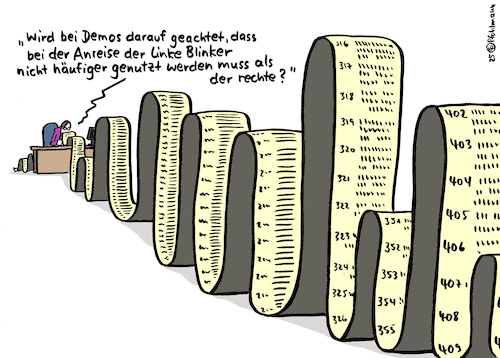 „Wird bei Demos darauf geachtet, dass
bei der Anreise der linke Blinker
nicht häufiger genutzt werden muss als
der rechte?"
25 © Pfohlmann
316
317
318
319
320
321
322
323
324
325
326
351
352
353
354
355
402
403
404
405
406
407
408
409